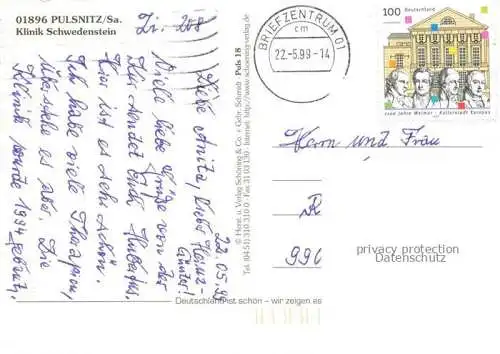 01896 PULSNITZ/Sa.
Klinik Schwedenstein
Zi. 208
22.05.99
Liebe Anita, liebs Heinz-
Günter!
Viele liebe Grüße von der
Kur sendet Euch Hubertus.
Hier ist es sehr schön.
Ich habe viele Therapien,
überstehe es aber. Die
Klinik wurde 1994 gebaut.
© Horst. u. Verlag Schöning & Co. + Gebr. Schmidt
Tel. (04 51) 310 310 0 - Fax 31 03 130 - Internet: http://www.schoening-verlag.de
Puls 18
BRIEFZENTRUM 01
cm
22.-5.99-14
100
Deutschland
1100 Jahre Weimar - Kulturstadt Europas
Herrn und Frau
R
990
privacy protection
Datenschutz
Deutschland ist schön – wir zeigen es